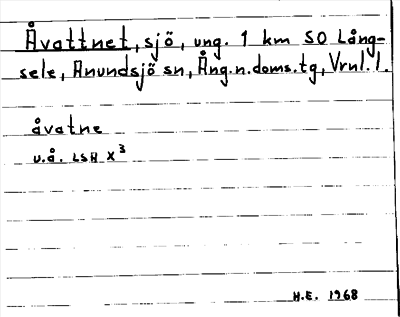 Åvattnet, sjö, ung. 1 km SO Lång-
sele, Anundsjö sn, Ång.n.doms.tg, Vrnl.l.
åvatne
u.å. LSH X³
H.E. 1968